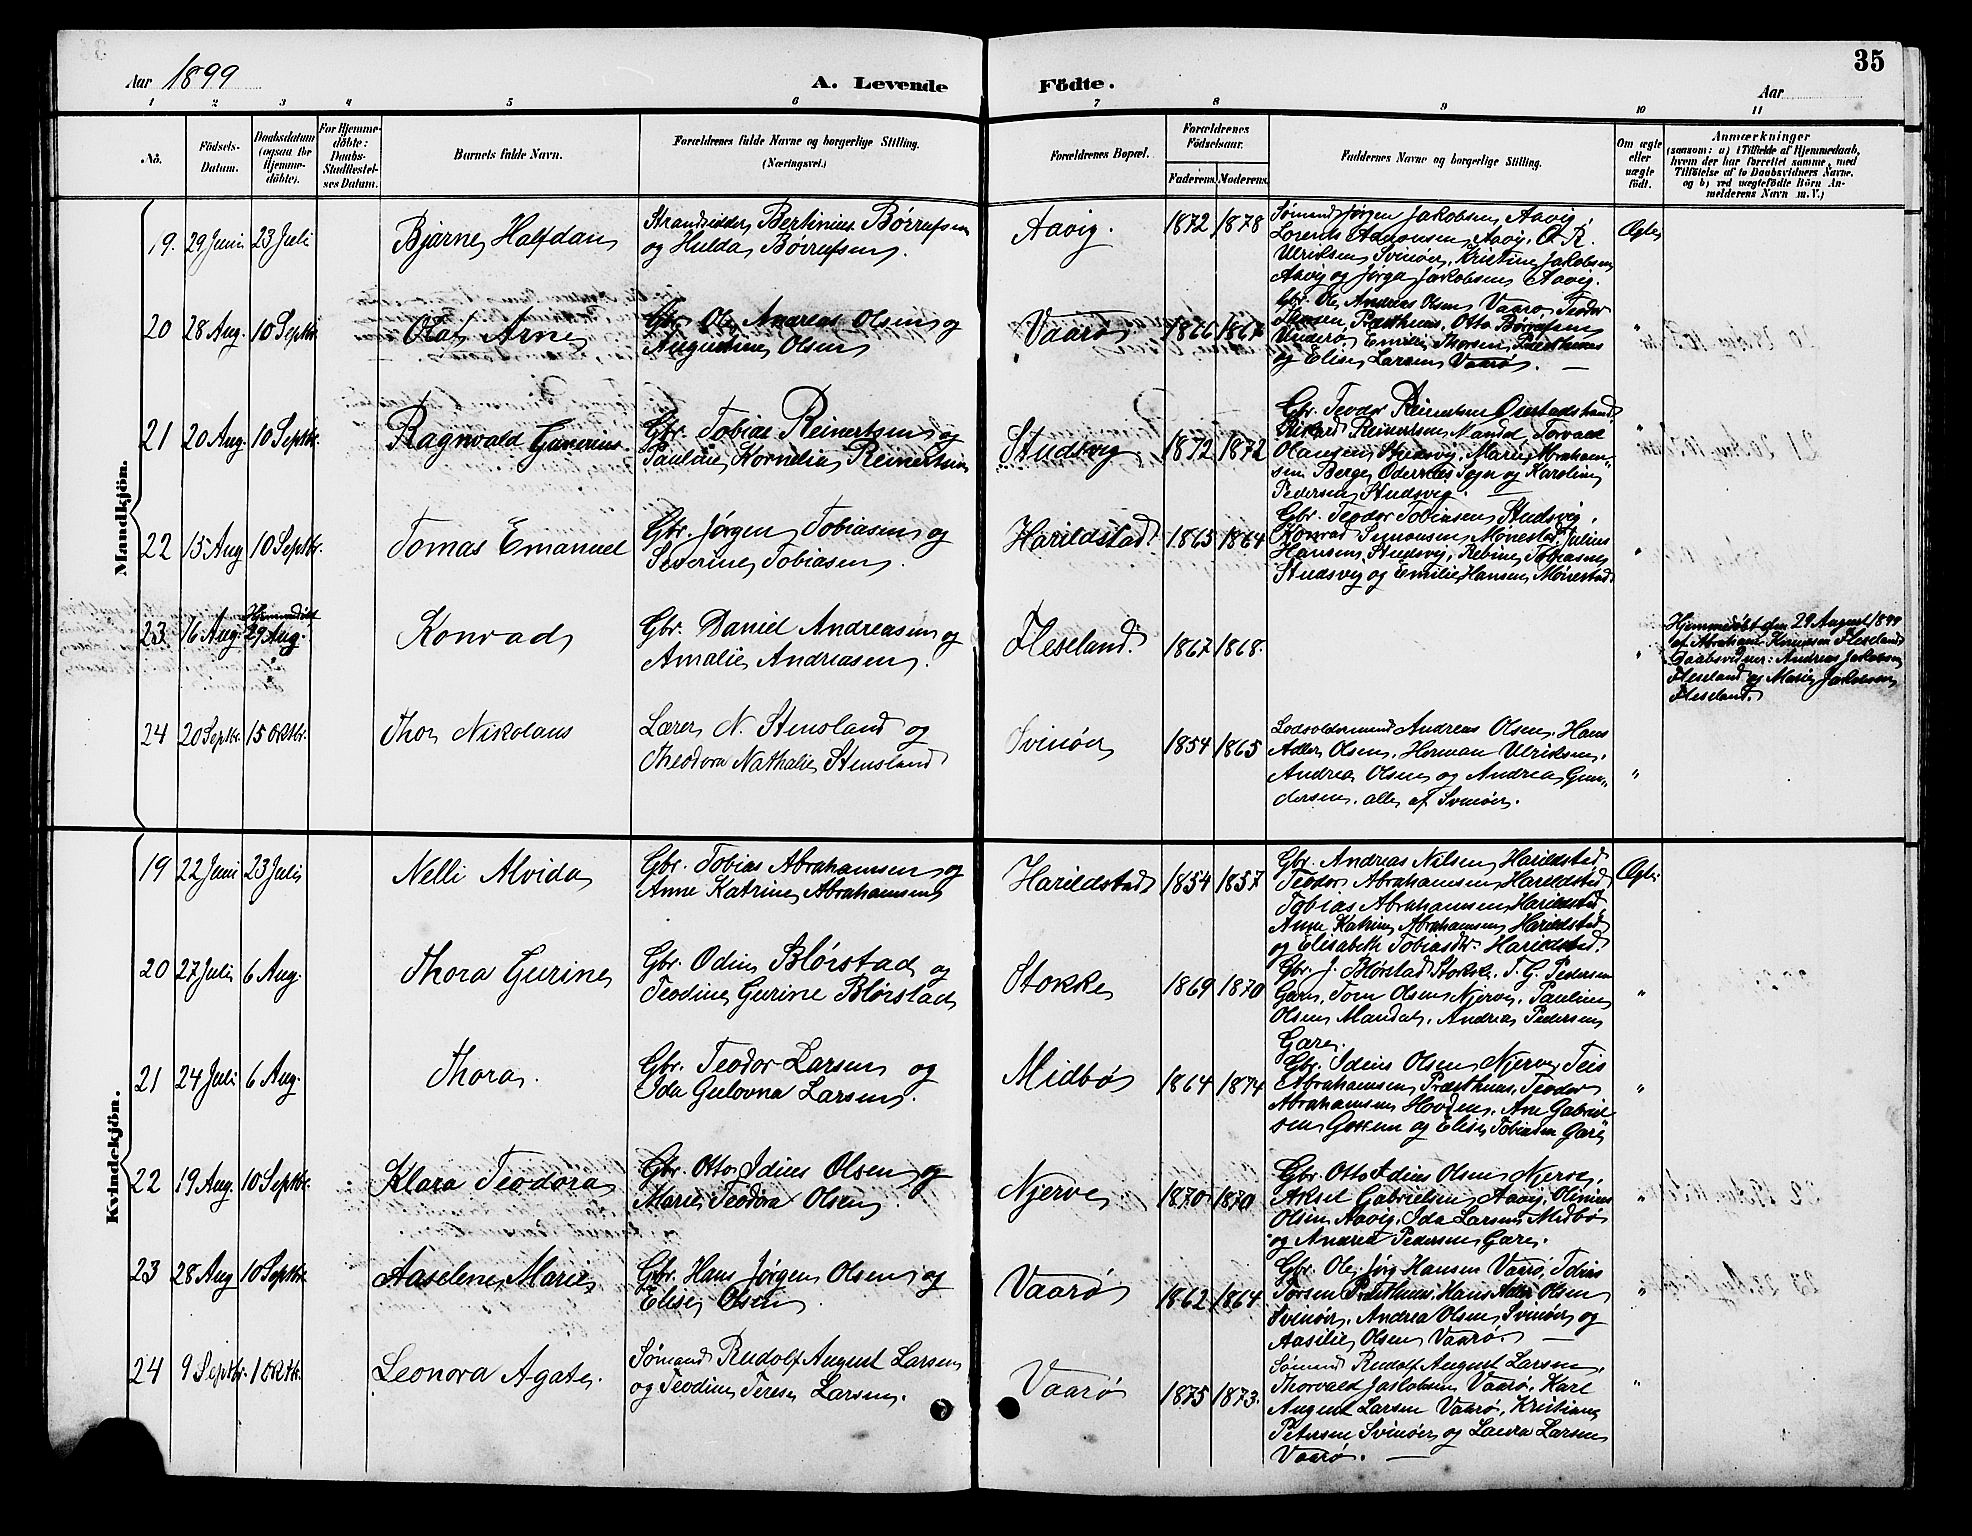 35
Aar 1899
A. Levende
Födte.
Aar
1 2 3 4 5 6 7 8 9 10 11
No.
Födsels-
Datum.
Daabsdatum
(ogsaa for
Hjemme-
döbte).
For Hjemme-
döbte:
Daabs-
Stadfæstel-
ses Datum.
Barnets fulde Navn.
Forældrenes fulde Navne og borgerlige Stilling.
(Næringsvei.)
Forældrenes Bopæl.
Forældrenes
Fødselsaar.
Faderens. Moderens.
Faddernes Navne og borgerlige Stilling.
Om ægte
eller
uægte
født.
Anmærkninger
(saasom: a) i Tilfælde af Hjemmedaab,
hvem der har forrettet samme, med
Tilføielse af to Daabsvidners Navne,
og b) ved uægtefødte Börn An-
melderens Navn m. V.)
Mandkjön.
19. 29 Juni 23 Juli
Bjarne Halfdan
Strandsidder Bertinius Børrufsen
og Hulda Børrufsen.
Aavig.
1872 1878
Sømand Jørgen Jakobsen Aavig,
Lorents Asmonsen, Aavig, O. R.
Ulriksen Svinøer, Kristine Jakobsen
Aavig og Jørga Jakobsen Aavig.
Ægte
20 28 Aug. 10 Septbr.
Olaf Arne
Gbr. Ole Andreas Olsen og
Augustine Olsen
Vaarø
1866 1867
Gbr. Ole Andreas Olsen Vaarø, Teodor
Thorsen, Præsthuus, Otto Børrufsen
Underø, Emilie Thorsen, Præsthuus
og Elise Larsen Vaarø. —
"
21 20 Aug. 10 Septbr.
Ragnvald Gunerius
Gbr. Tobias Reinertsen og
Pauline Kornelia Reinertsen
Studsvig
1872 1872
Gbr. Teodor Reinertsen
Reinertsen Mandal, Torvald
Olausen, Studsvig, Marie Abraham-
sen Berge, Oddernæs Sogn og Karoline
Pedersen Studsvig. —
"
22 15 Aug 10 Septbr.
Tomas Emanuel
Gbr. Jørgen Tobiasen og
Severine Tobiasen.
Harildstad
1865 1864
Gbr. Teodor Tobiasen Studsvig,
Konrad Simonsen Mønestad, Julius
Hansen Studsvig, Rebine Tobiasen
Studsvig og Emilie Hansen Mønestad
"
23 16 Aug. Hjemmedøbt 29 Aug.
Konrad
Gbr. Daniel Andreasen og
Amalie Andreasen.
Fleseland.
1867 1868.
"
Hjemmedøbt den 29 August 1899
af Abraham Knudsen Fleseland
Daabsvidner: Andreas Jakobsen
Fleseland og Marie Jakobsen
Fleseland.
24 20 Septbr. 15 Oktbr.
Thor Nikolaus
Lærer N. Stensland og
Theodora Nathalie Stensland
Svinøer
1854 1865
Lodsoldermand Andreas Olsen, Hans
Adler Olsen, Herman Ulriksen,
Andrea Olsen og Andrea Gun-
dersen. alle af Svinøer.
"
Kvindekjön.
19 22 Juni 23 Juli
Nelli Alvida
Gbr. Tobias Abrahamsen og
Anne Katrine Abrahamsen
Harildstad
1854 1857
Gbr. Andreas Nilsen, Harildstad
Teodor Abrahamsen Harildstad
Tobias Abrahamsen Harildstad,
Anne Katrine Abrahamsen, Harildstad
og Elisabeth Tobiasdtr. Harildstad.
Ægte
20 27 Juli 6 Aug.
Thora Gurine
Gbr. Odin Blørstad og
Teodine Gurine Blørstad
Stokke
1869 1870
Gbr. J. Blørstad Stokke, T. G. Pedersen
Gare, Tom Olsen Njerve, Pauline
Olsen Mandal, Andrea Pedersen
Gare.
"
21 24 Juli 6 Aug.
Thora.
Gbr. Teodor Larsen og
Ida Gulovna Larsen.
Midbø
1864 1874
Gbr. Idius Olsen Njerve, Teis
Abrahamsen Præsthuus, Teodor
Abrahamsen Hovden, Ane Gabriel-
sen og Elise Tobiasen Gare
"
22 19 Aug. 10 Septbr.
Klara Teodora
Gbr. Otto Idius Olsen og
Marie Teodora Olsen.
Njerve
1870 1870
Gbr. Otto Idius Olsen Njerve,
Aksel Gabrielsen Aavig, Olinius
Olsen Aavig, Ida Larsen Midbø
og Andrea Pedersen Gare.
"
23 28 Aug 10 Septbr.
Aaselene Marie
Gbr. Hans Jørgen Olsen og
Elise Olsen.
Vaarø
1862 1864
Gbr. Ole Jørg Hansen Vaarø, Tobias
Torsen Præsthuus, Hans Adler Olsen
Svinøer, Andrea Olsen Svinøer og
Aasilie Olsen Vaarø. —
"
24 9 Septbr. 1 Oktbr.
Leonora Agate.
Sømand Rudolf August Larsen
og Teodine Terese Larsen.
Vaarø
1875 1873.
Sømand Rudolf August Larsen,
Thorvald Jakobsen Vaarø, Karl
August Larsen Vaarø, Kristiane
Petersen Svinøer og Laura Larsen
Vaarø. —
"